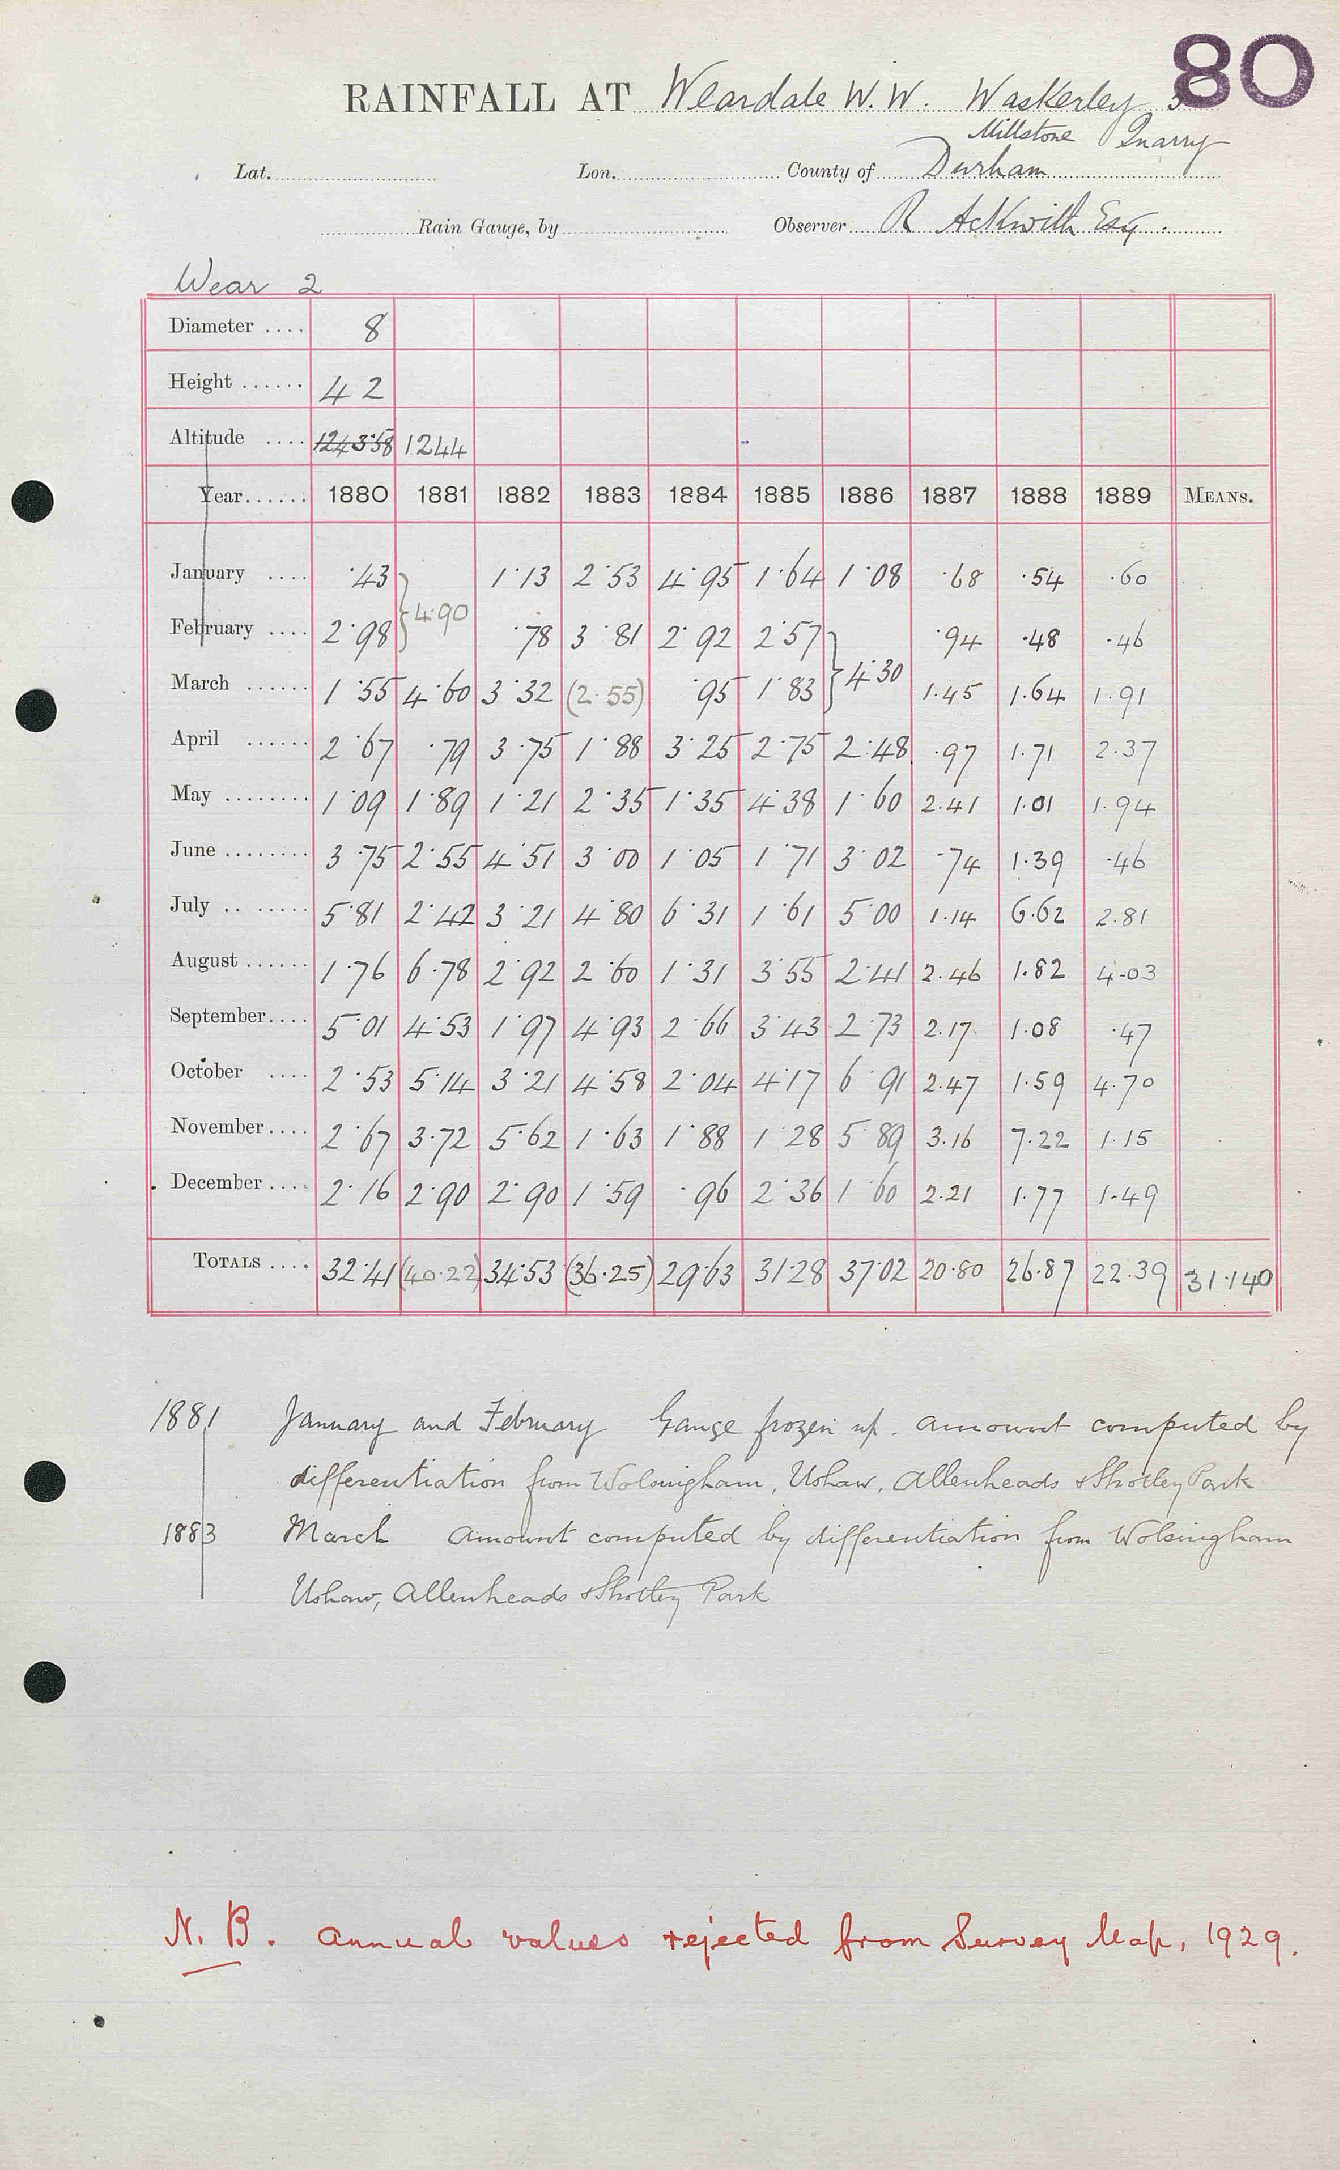 80
RAINFALL AT Weardale W.W. Waskerley
Millstone Quarry
Lat. Lon. County of Durham
Rain Gauge, by Observer R Ackwith Esq.
Wear 2
Diameter .... 8
Height ...... 42
Altitude .... 1243.58 1244
Year...... 1880 1881 1882 1883 1884 1885 1886 1887 1888 1889 MEANS.
January .... .43 } 4.90 1.13 2.53 4.95 1.64 1.08 .68 .54 .60
February .... 2.98 .78 3.81 2.92 2.57 } 4.30 .94 .48 .46
March ...... 1.55 4.60 3.32 (2.55) .95 1.83 1.45 1.64 1.91
April ...... 2.67 .79 3.75 1.88 3.25 2.75 2.48 .97 1.71 2.37
May ........ 1.09 1.89 1.21 2.35 1.35 4.38 1.60 2.41 1.01 1.94
June ........ 3.75 2.55 4.51 3.00 1.05 1.71 3.02 .74 1.39 .46
July .. ...... 5.81 2.42 3.21 4.80 6.31 1.61 5.00 1.14 6.62 2.81
August ...... 1.76 6.78 2.92 2.60 1.31 3.55 2.41 2.46 1.82 4.03
September.... 5.01 4.53 1.97 4.93 2.66 3.43 2.73 2.17 1.08 .47
October .... 2.53 5.14 3.21 4.58 2.04 4.17 6.91 2.47 1.59 4.70
November.... 2.67 3.72 5.62 1.63 1.88 1.28 5.89 3.16 7.22 1.15
December.... 2.16 2.90 2.90 1.59 .96 2.36 1.60 2.21 1.77 1.49
TOTALS .... 32.41 (40.22) 34.53 (36.25) 29.63 31.28 37.02 20.80 26.87 22.39 31.140
1881 January and February Gauge frozen up. amount computed by
differentiation from Wolsingham, Ushaw, Allenheads & Shotley Park
1883 March amount computed by differentiation from Wolsingham
Ushaw, Allenheads & Shotley Park
N.B. Annual values rejected from Survey Map, 1929.